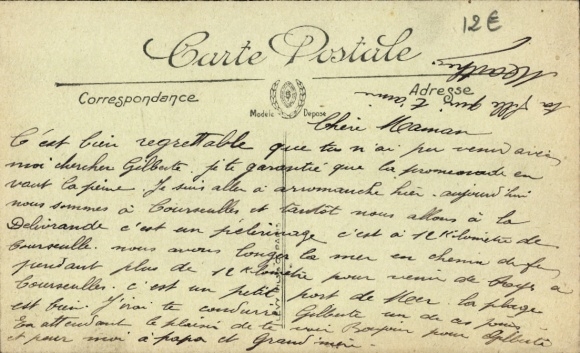 12€
Carte Postale
Correspondance
Adresse
Modèle Déposé
Chère Maman
C'est bien regrettable que tu n'ai pu venir avec
moi chercher Gilberte, je te garantie que la promenade en
vaut la peine. Je suis allée à arromanche hier. aujourd'hui
nous sommes à Courseulles et tantôt nous allons à la
Délivrande c'est un pèlerinage c'est à 12 Kilomètre de
Courseulle. nous avons longer la mer en chemin de fer
pendant plus de 12 Kilomètre pour venir de à
Courseulles. c'est un petit port de Mer. la plage
est bien. J'irai te conduire Gilberte un de ces jours.
En attendant le plaisir de te voir Bonjour pour Gilberte
et pour moi à papa et Grand'mère.
ta fille qui t'aime
Marthe